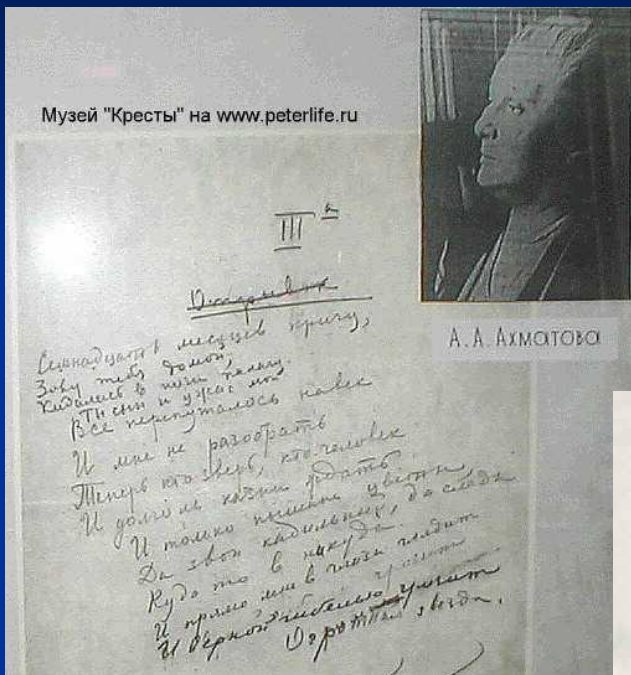 Музей "Кресты" на www.peterlife.ru
III а
Отрывок
Семнадцать месяцев кричу,
Зову тебя домой,
Кидалась в ноги палачу.
Ты сын и ужас мой
Все перепуталось навек
И мне не разобрать
Теперь кто зверь, кто человек
И долго ль казни ждать.
И только пышные цветы,
Да звон кадильный, да следы
Куда то в никуда.
И прямо мне в глаза глядит
И гибелью грозит
Огромная звезда.
А.А.АХМАТОВА